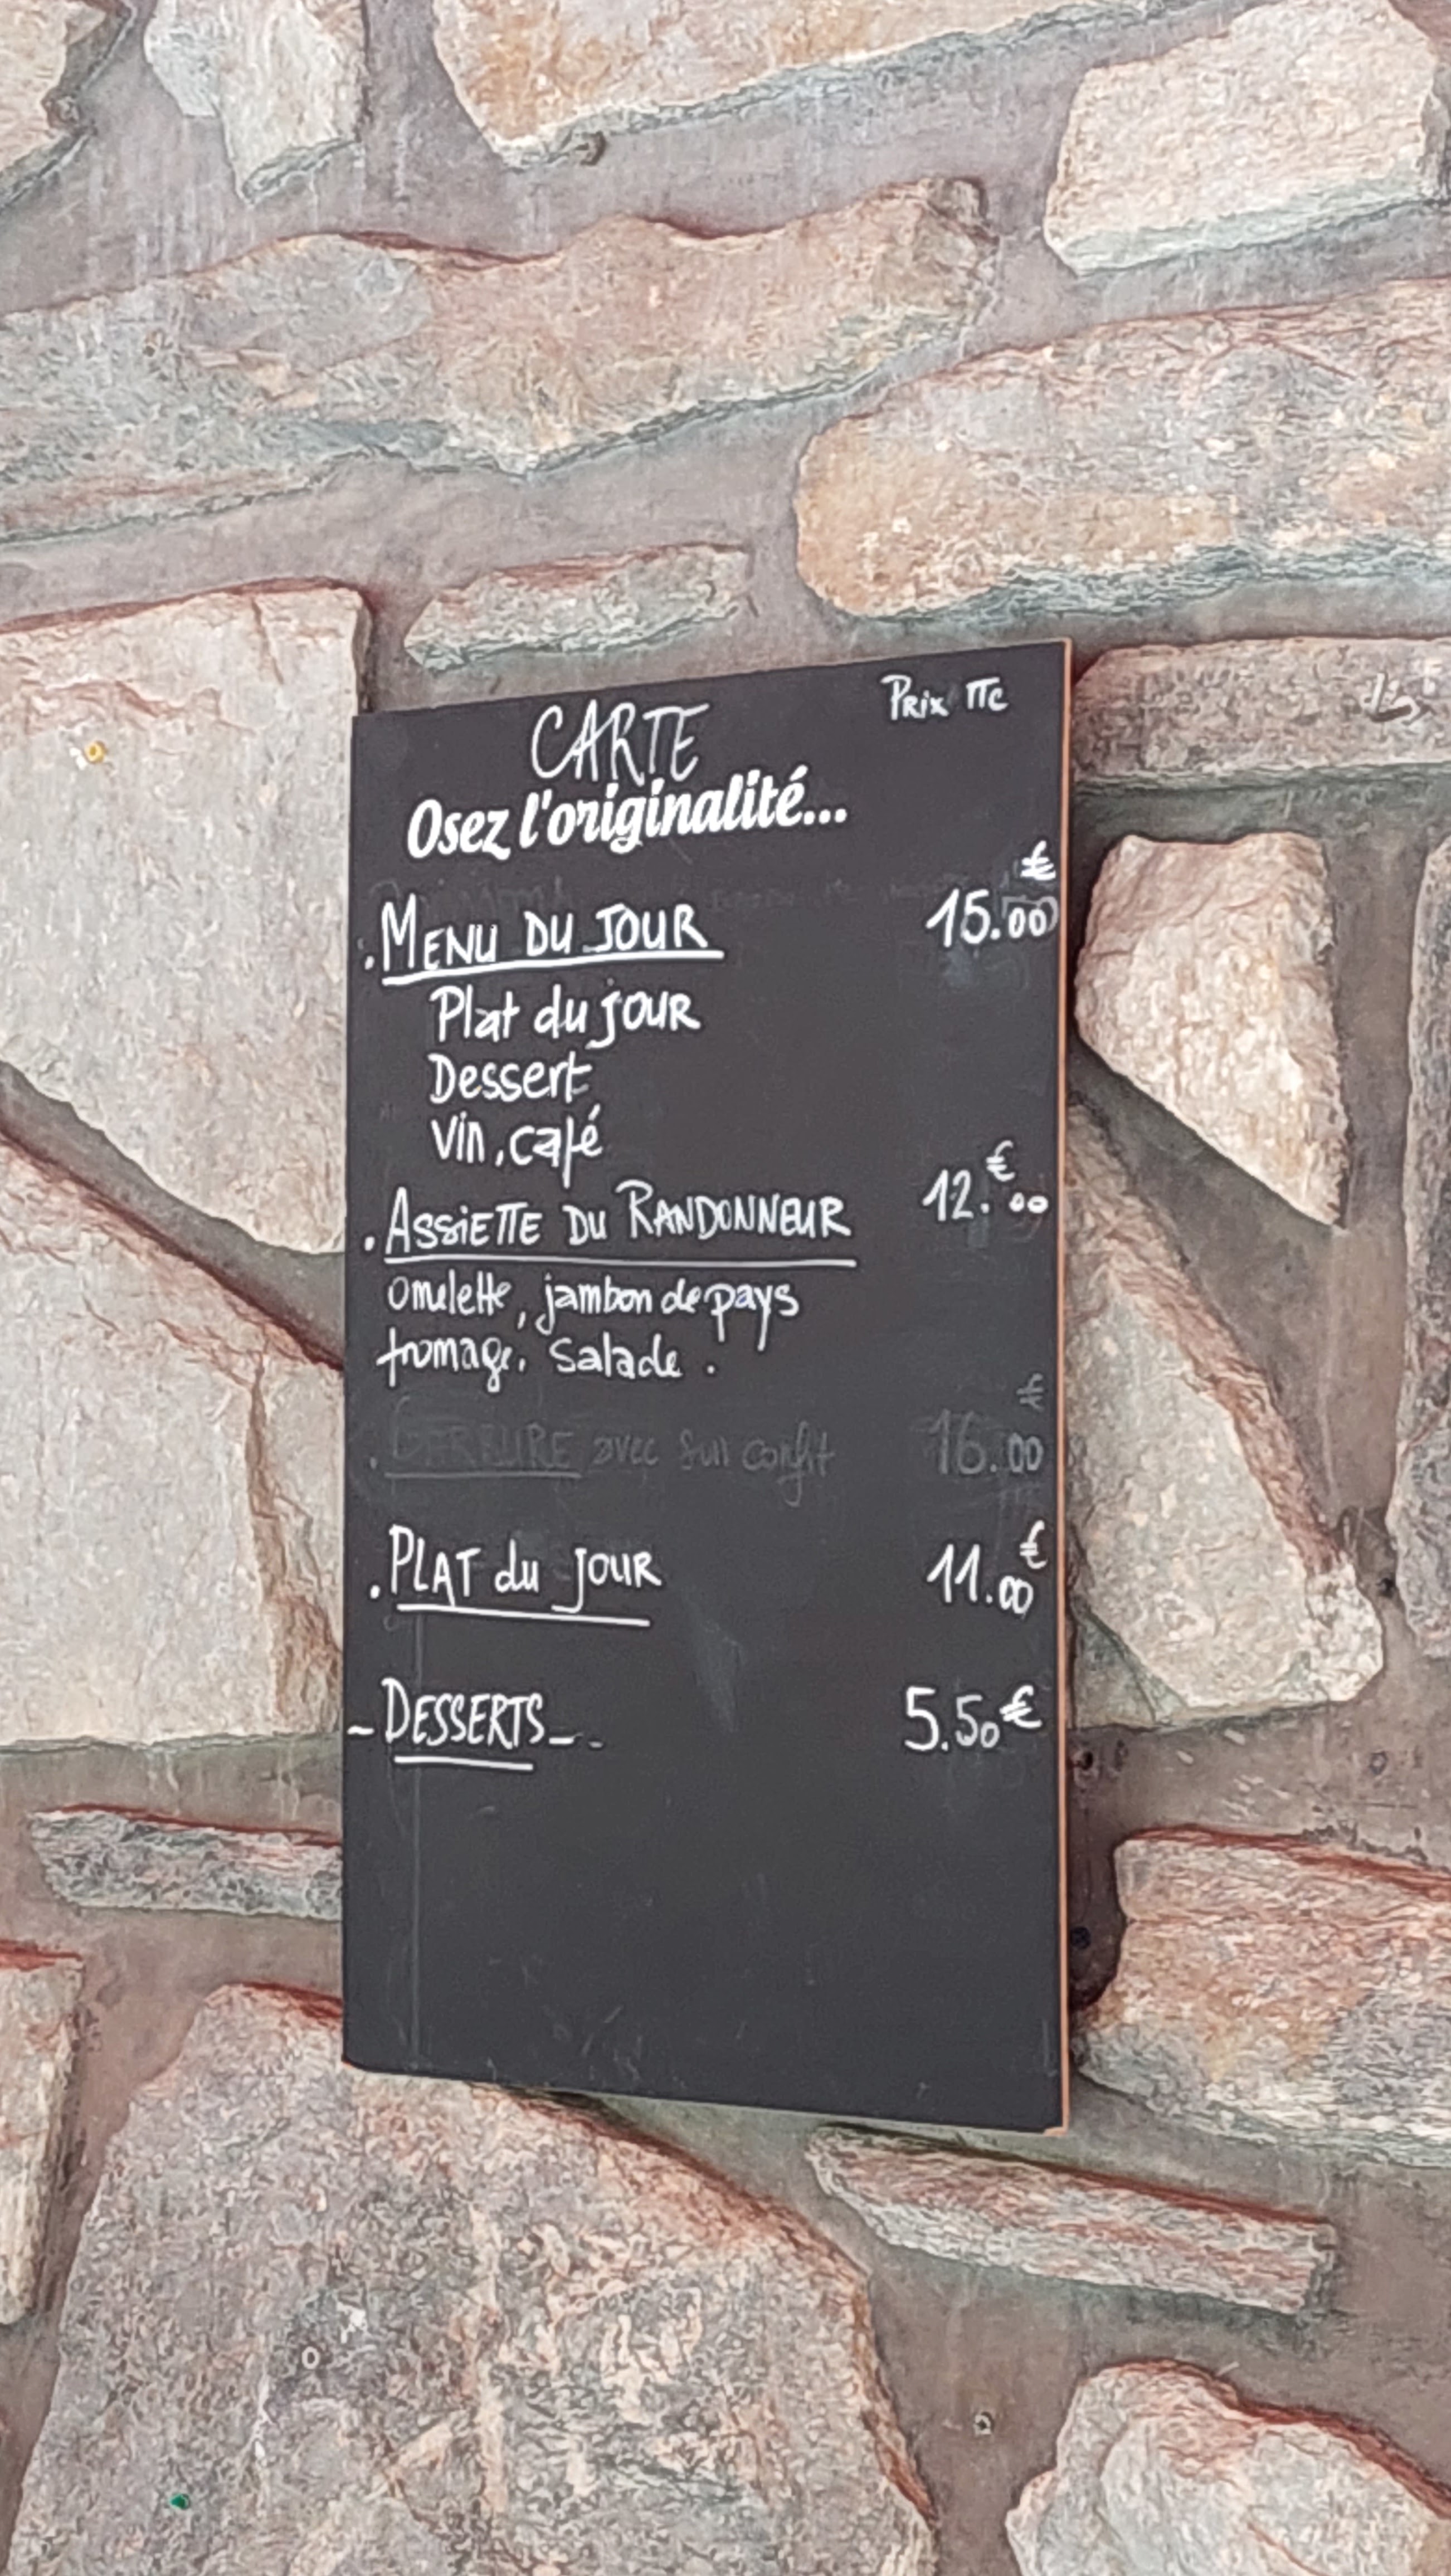 CARTE
Prix TTC
Osez l'originalité...
. MENU DU JOUR 15.00€
Plat du jour
Dessert
Vin, café
. ASSIETTE DU RANDONNEUR 12.€00
omelette, jambon de pays
fromage, Salade.
. avec confit 16.00€
. PLAT du JOUR 11.00€
- DESSERTS - - 5.50€